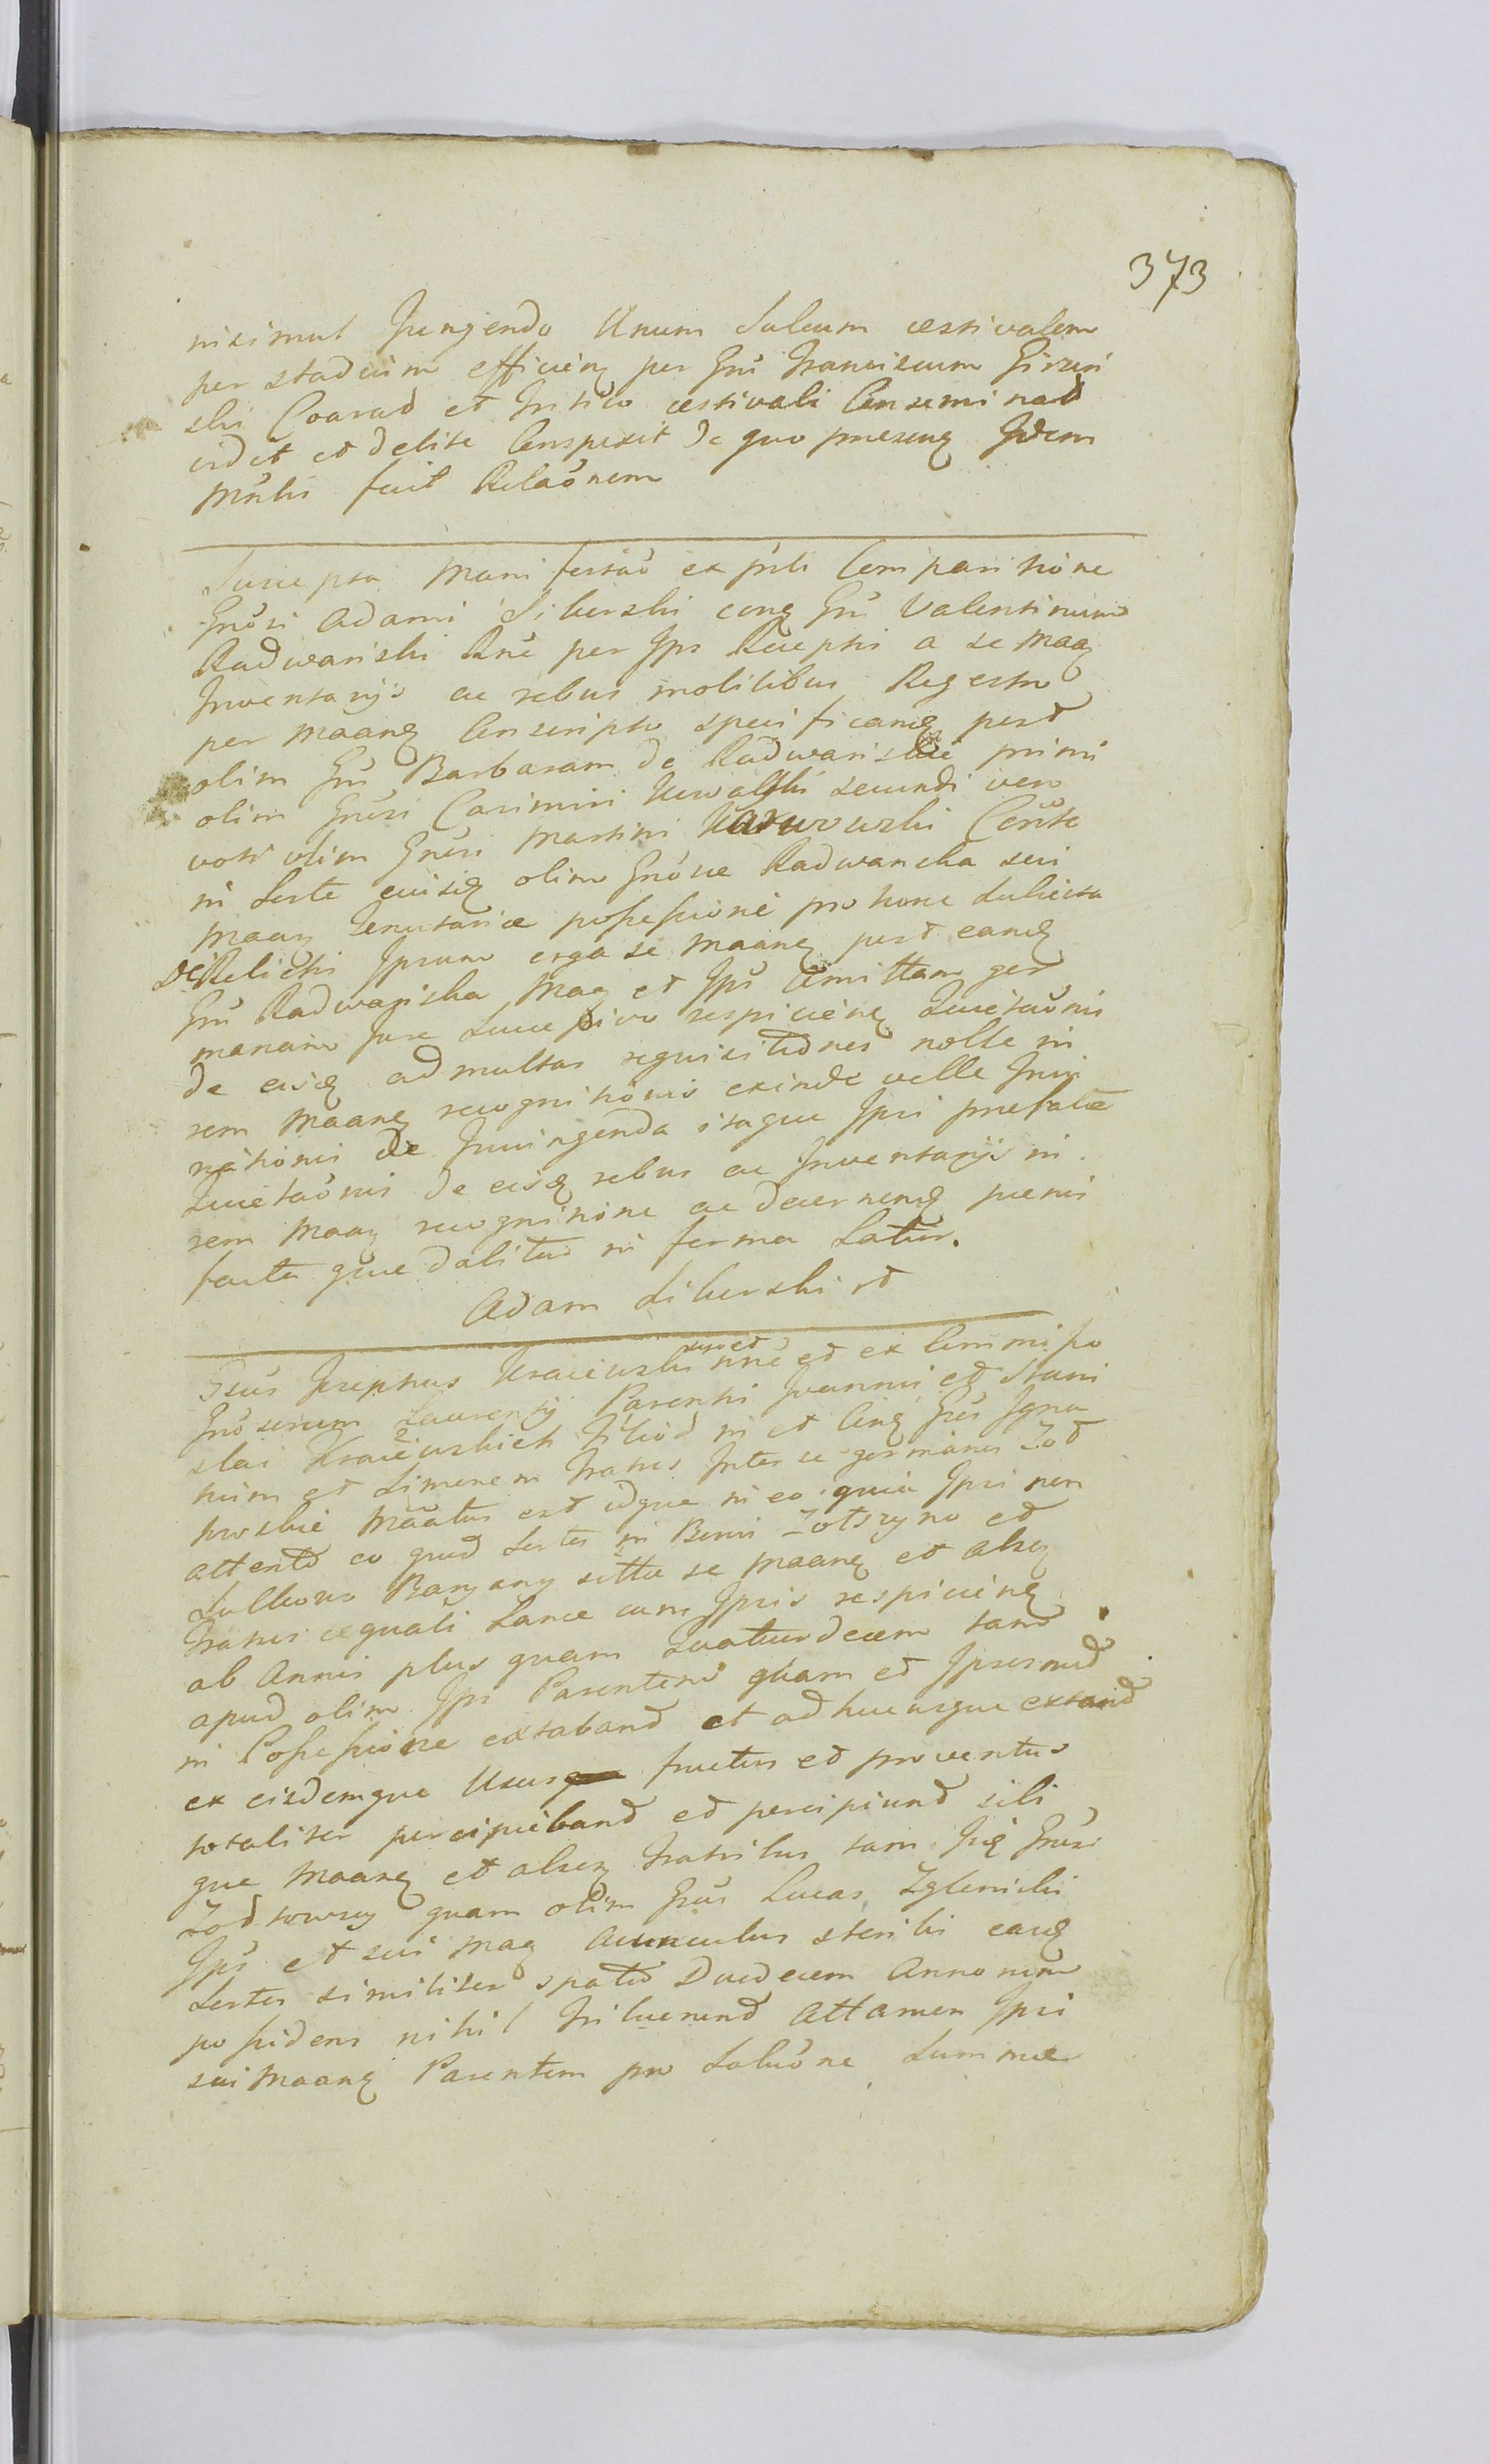 373
Jungendo Unum Sulcum aestivalem
per stadium efficien per Gnu Franciscum Girzyń
ski Coarad et tritico aestivali Conseminad
vidit et debite Conspexit de quo praesens Idem
Mnlis fecit Relaōnem
Suscepta Manifestaō ex pnli Comparitione
Gnōsi Adami Siburski conq Gnū Valentinum
Radwanski Rnē per Ips Recepti a se Maaq
Inventarijs ac rebus mobilibus Regestro
per Maanq Conscripto specificandq post
olim Gnū Barbaram de Radwanskie primi
olim Gnōsi Casimiri secundi vero
voti olim Gnōsi Martini
in Sorte eiusq olim Gnōsae Radwanska sui
Maaq Tenutariae possessione pro tunc subiecta
deRelicti Ipsum erga se Maanq post eandq
Gnū Radwanska Maq et Ips Amittam ger
manam Jure Successivo respicienq Quietaōnis
de eisdq ad multas requisitiones nolle in
rem Maanq recognitionis exinde velle Iniu
nctionis de Iniungenda itaque Ipsi praefatae
Quietaōnis de eisdq rebus ac Inventarijs in
rem Maaq recognitione ac decernendq paenis
facta quae dabitur in forma Latius.
Adam Siburski rt
Gnūs Josephus Kraiewski suo et nnē et ex Commisso
Gnōsorum Laurentij Parentis Joannis et Stani
slai Kraiewskich Filiod in et Conq Gnōs Igna
tium et Simonem Fratres Inter se germanos Zoł
towskie Māātus est idque in eo quia Ipsi non
attento eo quod Sortes in Bonis Zołtszyno et
Sulkowo Baryany sittae se Maanq et alsq
Fratres aequali Lance cum Ipsis respicienq
ab Annis plus quam Quatuordecem tand
apud olim Ips Parentem quam et Ipsosmed
in Possessione extaband et adhucusque extand
ex eisdemque Usus fructus et proventus
totaliter percipieband et percipiund sibi
que Maanq et alsq Fratribus tam Gnōsi
Zołtowscy quam olim Gnūs Lucas Zglenicki
Ips et sui Maq Avunculus sterilis easdq
Sortes similiter spatio Duodecem Annorum
possidens nihil tribuerund attamen Ipsi
sui Maanq Parentem pro Soluōne Summae